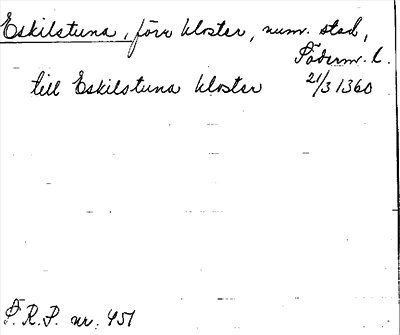 Eskilstuna, förr kloster, num. stad,
Söderm. l.
till Eskilstuna kloster 21/3 1360
S. R. P. nr. 451